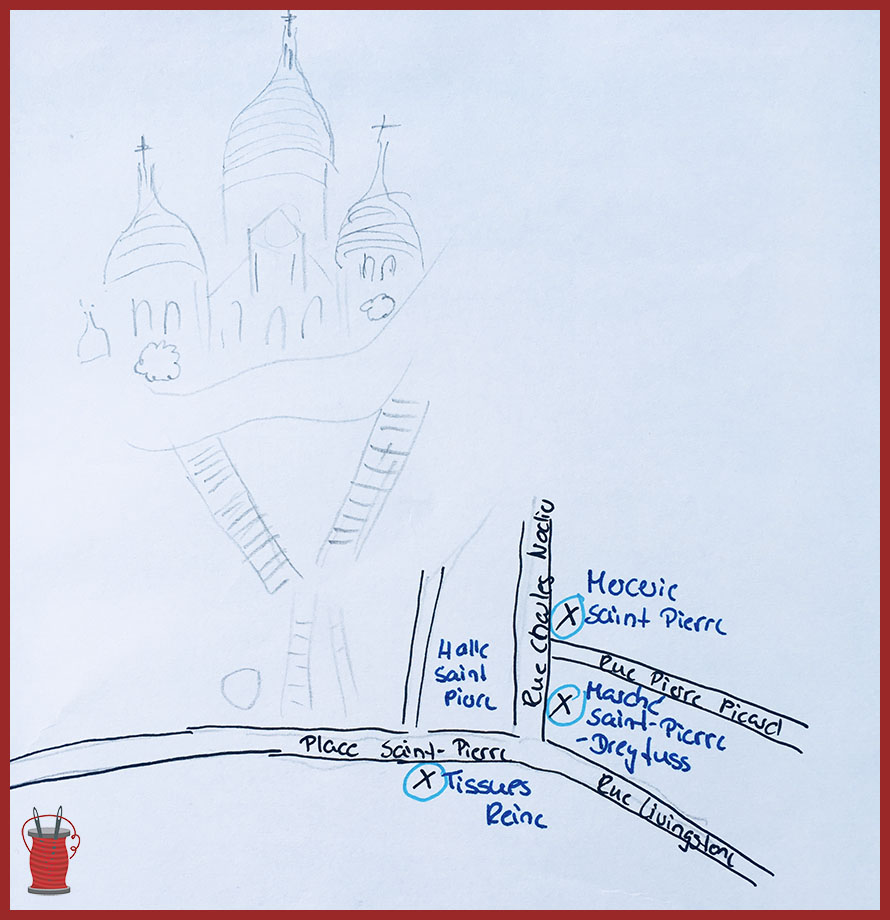 Rue Charles Nodier
Mercerie
Saint Pierre
Rue Pierre Picard
Halle
Saint
Pierre
Marché
Saint-Pierre
-Dreyfuss
Place Saint-Pierre
Tissues
Reine
Rue Livingstone